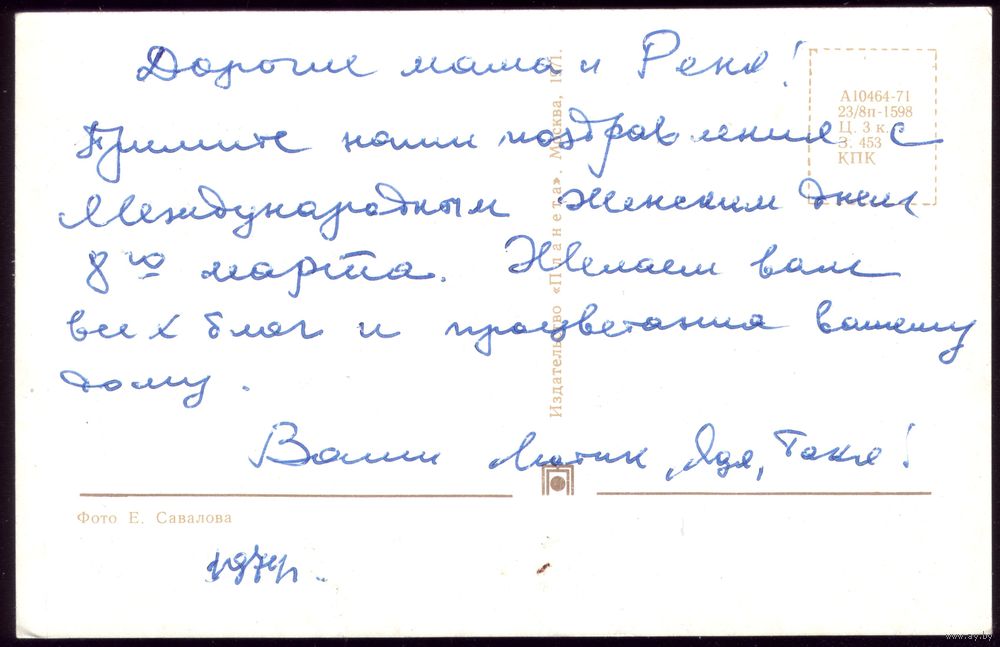 Дорогие мама и Рене!
Примите наши поздравления с
Международным женским днем
8го марта. Желаем вам
всех благ и процветания вашему
дому.
Ваши Лютик, Ядя, Таня!
А10464-71
23/8п-1598
Ц. 3 к.
З. 453
КПК
Издательство «Планета». Москва, 1971.
Фото Е. Савалова
www.ay.by